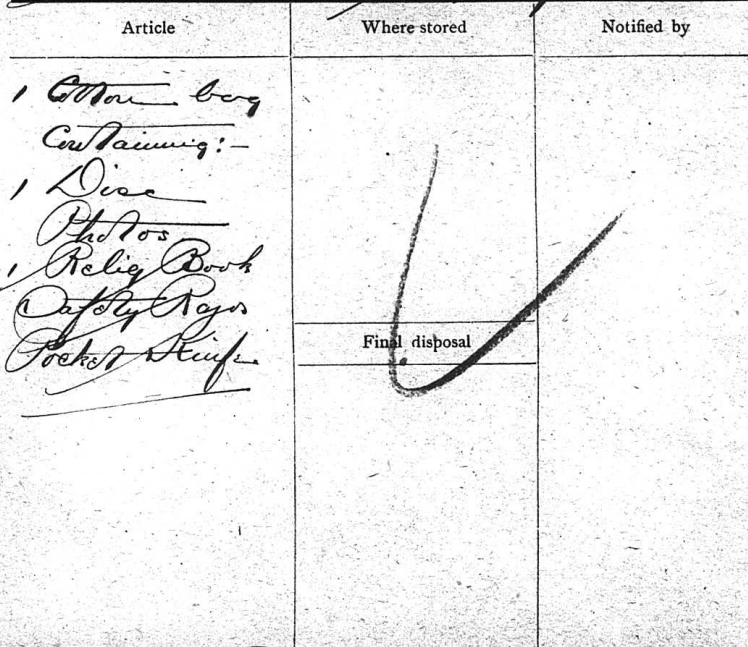 Article Where stored Notified by
1 Cotton bag
Containing:-
1 Disc
Photos
1 Relig Book
Safety Razor
Pocket Knife
Final disposal